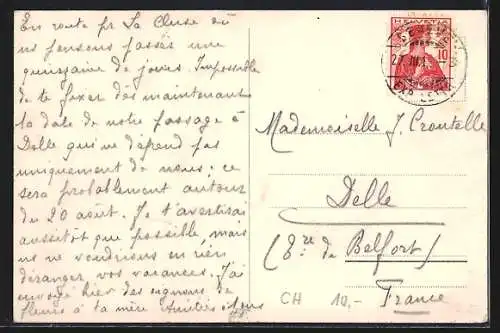 En route pr La Cluse où
ns pensons passer une
quinzaine de jours. Impossible
de te fixer dès maintenant
la date de notre passage à
Delle qui ne dépend pas
uniquement de nous: ce
sera probablement autour
du 20 août. Je t'avertirai
aussitôt que possible, mais
ns ne voudrions en rien
déranger vos vacances. J'ai
envoyé hier des oignons de
fleurs à ta mère Amitiés à tous
HELVETIA
10
Mademoiselle J. Croutelle
Delle
(Trre de Belfort)
France
CH 10,-